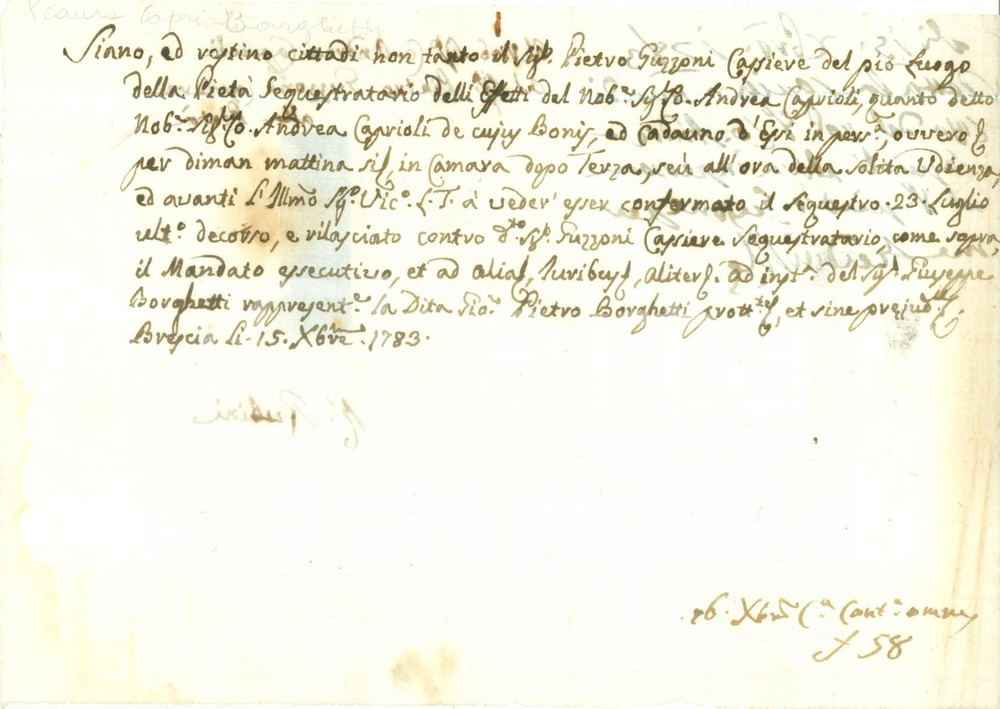 causa Caprioli Borghetti
Siano, ed restino cittadi non tanto il Sigr. Pietro Guzzoni Cassiere del pio Luogo
della Pietà Sequestratario delli Effetti del Nob.e Sig.r Co. Andrea Caprioli, quanto detto
Nob.e Sig.r Co. Andrea Caprioli de cujus Bonis, ed Cadauno d'Essi in pers.a, ovvero
per diman mattina sis, in Camara dopo Terza, seù all'ora della solita Udienza,
ed avanti l'Illmo Sig.r Vic.o L. T. à veder' esser confermato il sequestro 23. Luglio
ult.o decorso, e rilasciato contro d.to Sigr. Guzzoni Cassiere Sequestratario, come sopra,
il Mandato essecutivo, et ad alias, Juribus, aliter. ad inst.a del Sigr. Giuseppe
Borghetti rappresent.e la Dita Gio. Pietro Borghetti prott.tes, et sine prejud.
Brescia li. 15. Xbre. 1783.
16. Xbre C.a Cont.a omnes
f 58